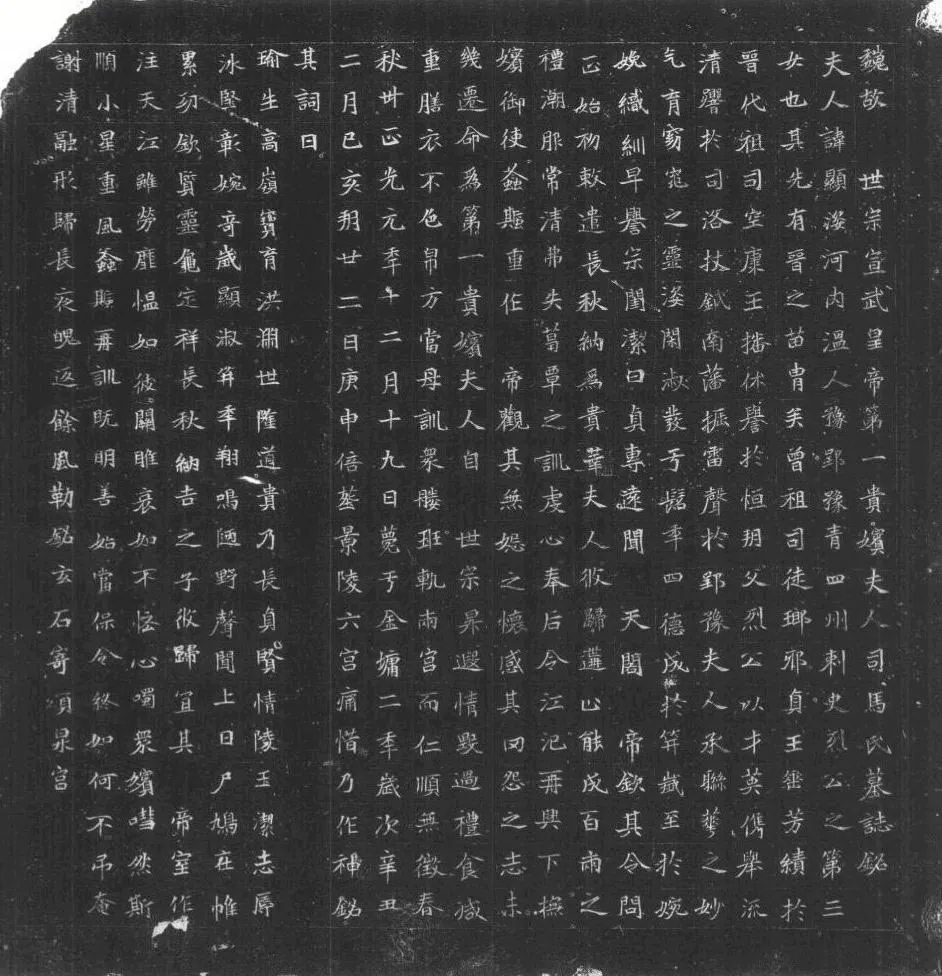 魏故 世宗宣武皇帝第一貴嬪夫人司馬氏墓誌銘
夫人諱顯姿河内溫人豫郢豫青四州刺史烈公之第三
女也其先有晉之苗胄矣曾祖司徒瑯邪貞王垂芳績於
晉代祖司空康王播休譽於恒朔父烈公以才英儁舉流
清響於司洛杖鉞南藩振雷聲於郢豫夫人承聯華之妙
气育窈窕之靈姿閑淑發于髫年四德成於筓歲至於婉
娩織紃早譽宗閨潔白貞專遠聞 天閤 帝欽其令問
正始初敕遣長秋納爲貴華夫人攸歸遘止能成百兩之
禮潮服常清弗失葛覃之訓虔心奉后令江汜再興下撫
嬪御使螽斯重作 帝觀其無妬之懷感其罔怨之志未
幾遷命爲第一貴嬪夫人自 世宗昇遐情毀過禮食減
重膳衣不色帛方當母訓衆媵班軌兩宮而仁順無徵春
秋卅正光元年十二月十九日薨于金墉二年歲次辛丑
二月己亥朔廿二日庚申倍塟景陵六宮痛惜乃作神銘
其詞曰
瑜生高嶺寶育洪淵世隆道貴乃長貞賢情陵玉潔志厲
冰堅彰婉奇歲顯淑筓年翔鳴陋野聲聞上日尸鳩在帷
累刃欽質靈龜定祥長秋納吉之子攸歸宜其 帝室作
注天江雖勞靡愠如彼關雎哀如不恡心噣衆嬪嘒然斯
順小星重風螽斯再訓既明善始當保令終如何不弔奄
謝清融形歸長夜魄返餘風勒銘玄石寄頌泉宮